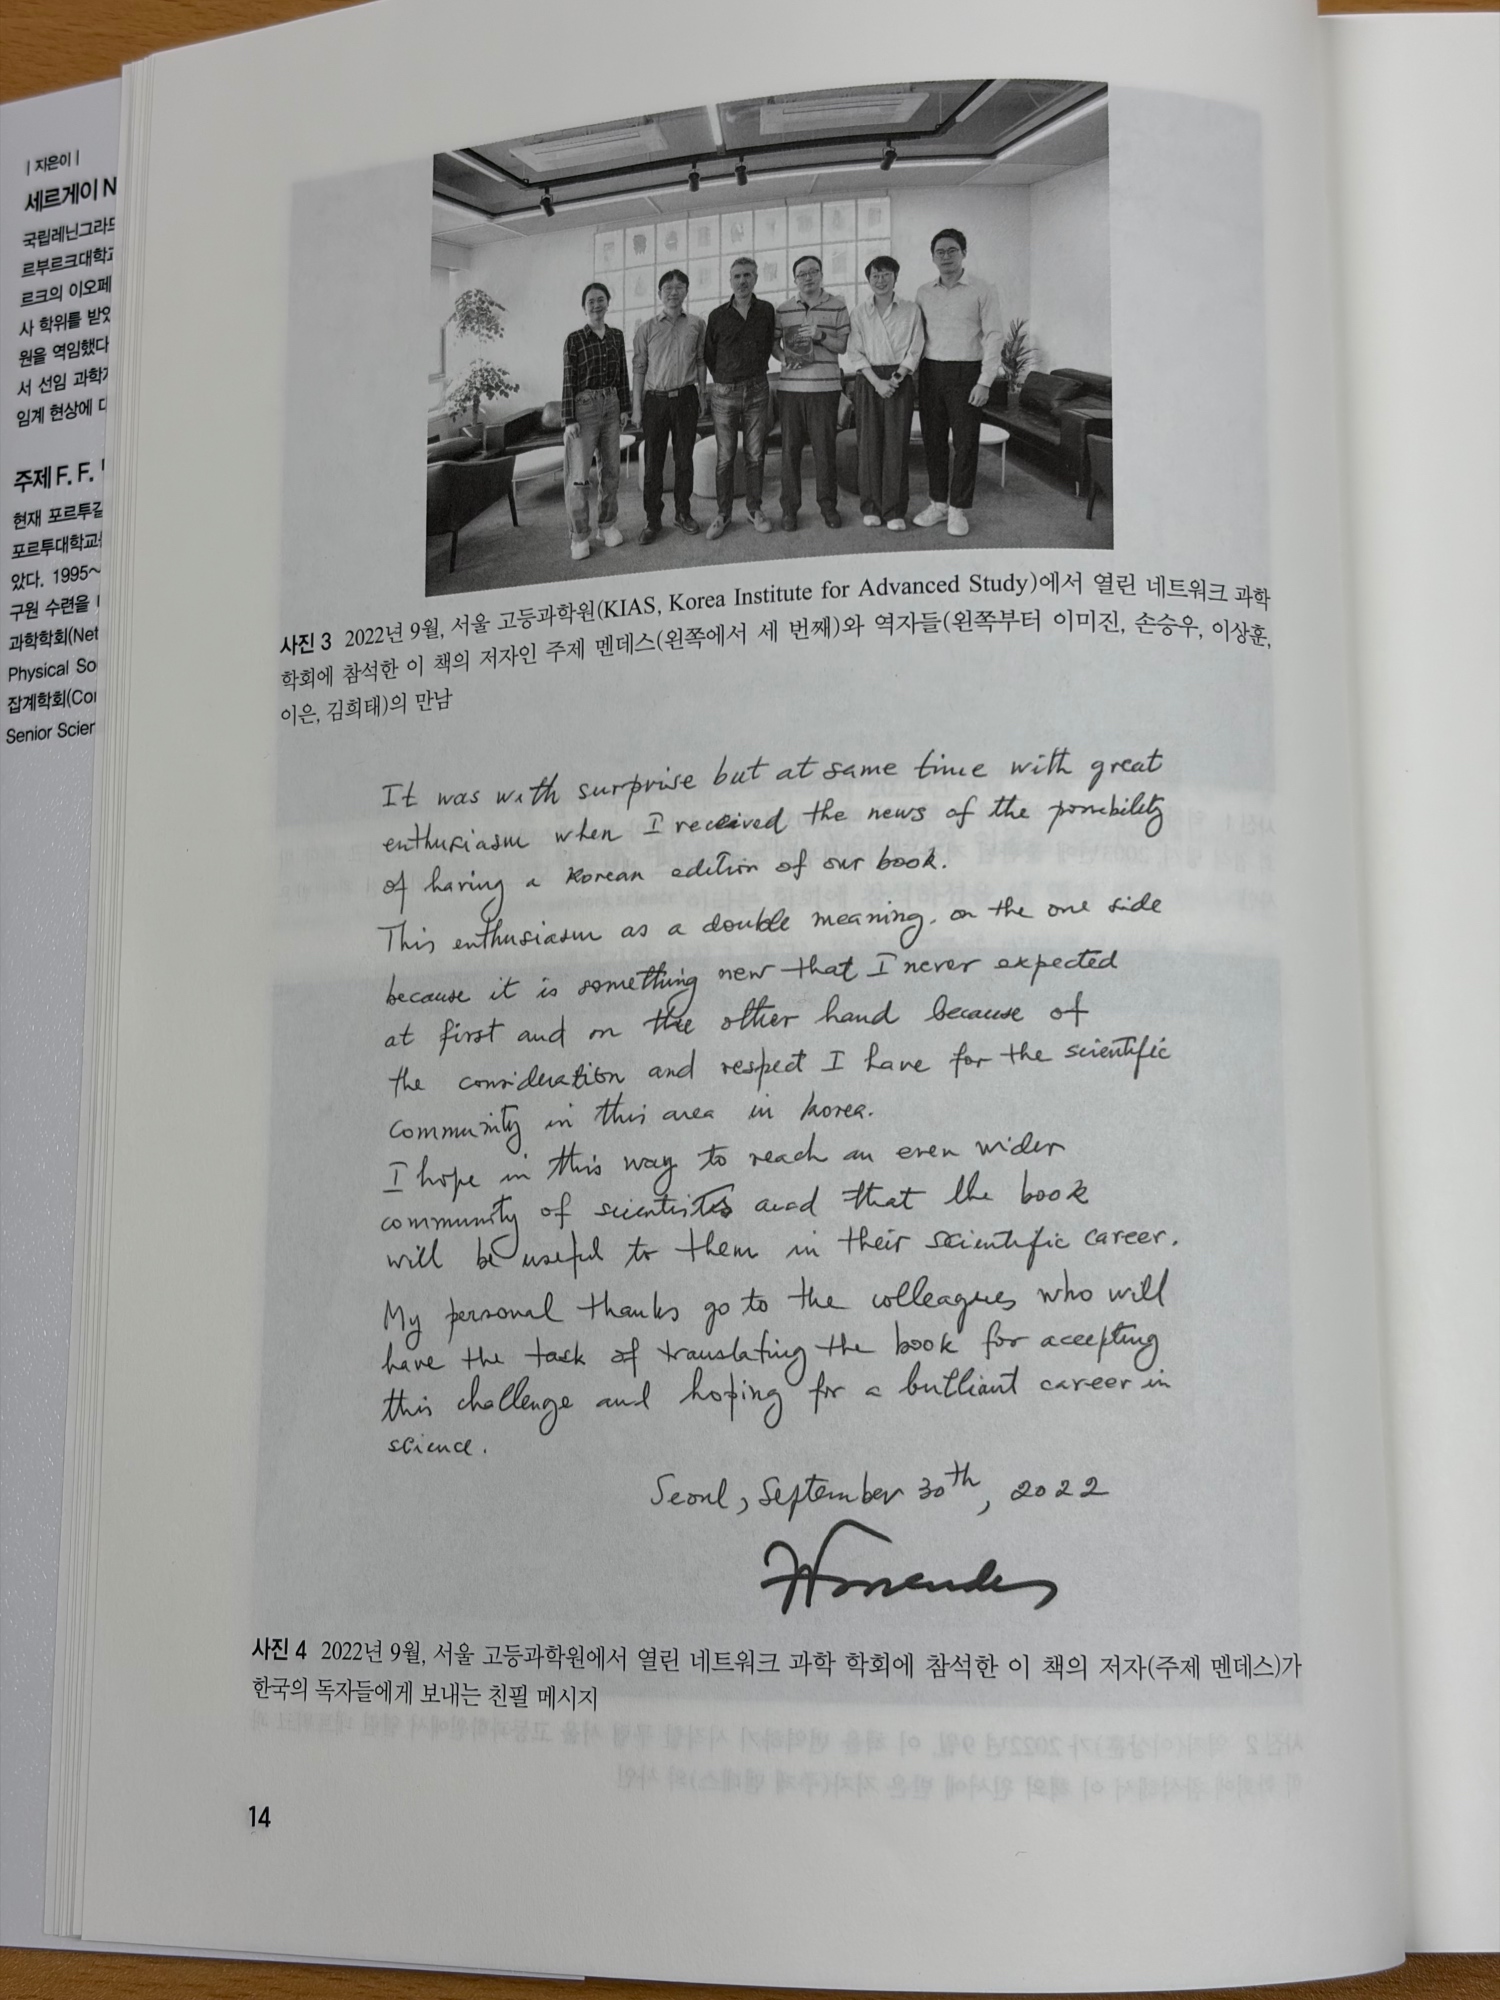 | 지은이 |
세르게이 N
국립레닌그라드
르부르크대학교
르크의 이오페
사 학위를 받았
원을 역임했다
서 선임 과학자
임계 현상에 대
주제 F. F.
현재 포르투갈
포르투대학교
았다. 1995~
구원 수련을
과학학회(Net
Physical So
잡계학회(Con
Senior Scien
사진 3 2022년 9월, 서울 고등과학원(KIAS, Korea Institute for Advanced Study)에서 열린 네트워크 과학
학회에 참석한 이 책의 저자인 주제 멘데스(왼쪽에서 세 번째)와 역자들(왼쪽부터 이미진, 손승우, 이상훈,
이은, 김희태)의 만남
It was with surprise but at same time with great
enthusiasm when I received the news of the possibility
of having a Korean edition of our book.
This enthusiasm as a double meaning. on the one side
because it is something new that I never expected
at first and on the other hand because of
the consideration and respect I have for the scientific
community in this area in Korea.
I hope in this way to reach an even wider
community of scientists and that the book
will be useful to them in their scientific career.
My personal thanks go to the colleagues who will
have the task of translating the book for accepting
this challenge and hoping for a brilliant career in
science.
Seoul, September 30th, 2022
사진 4 2022년 9월, 서울 고등과학원에서 열린 네트워크 과학 학회에 참석한 이 책의 저자(주제 멘데스)가
한국의 독자들에게 보내는 친필 메시지
14